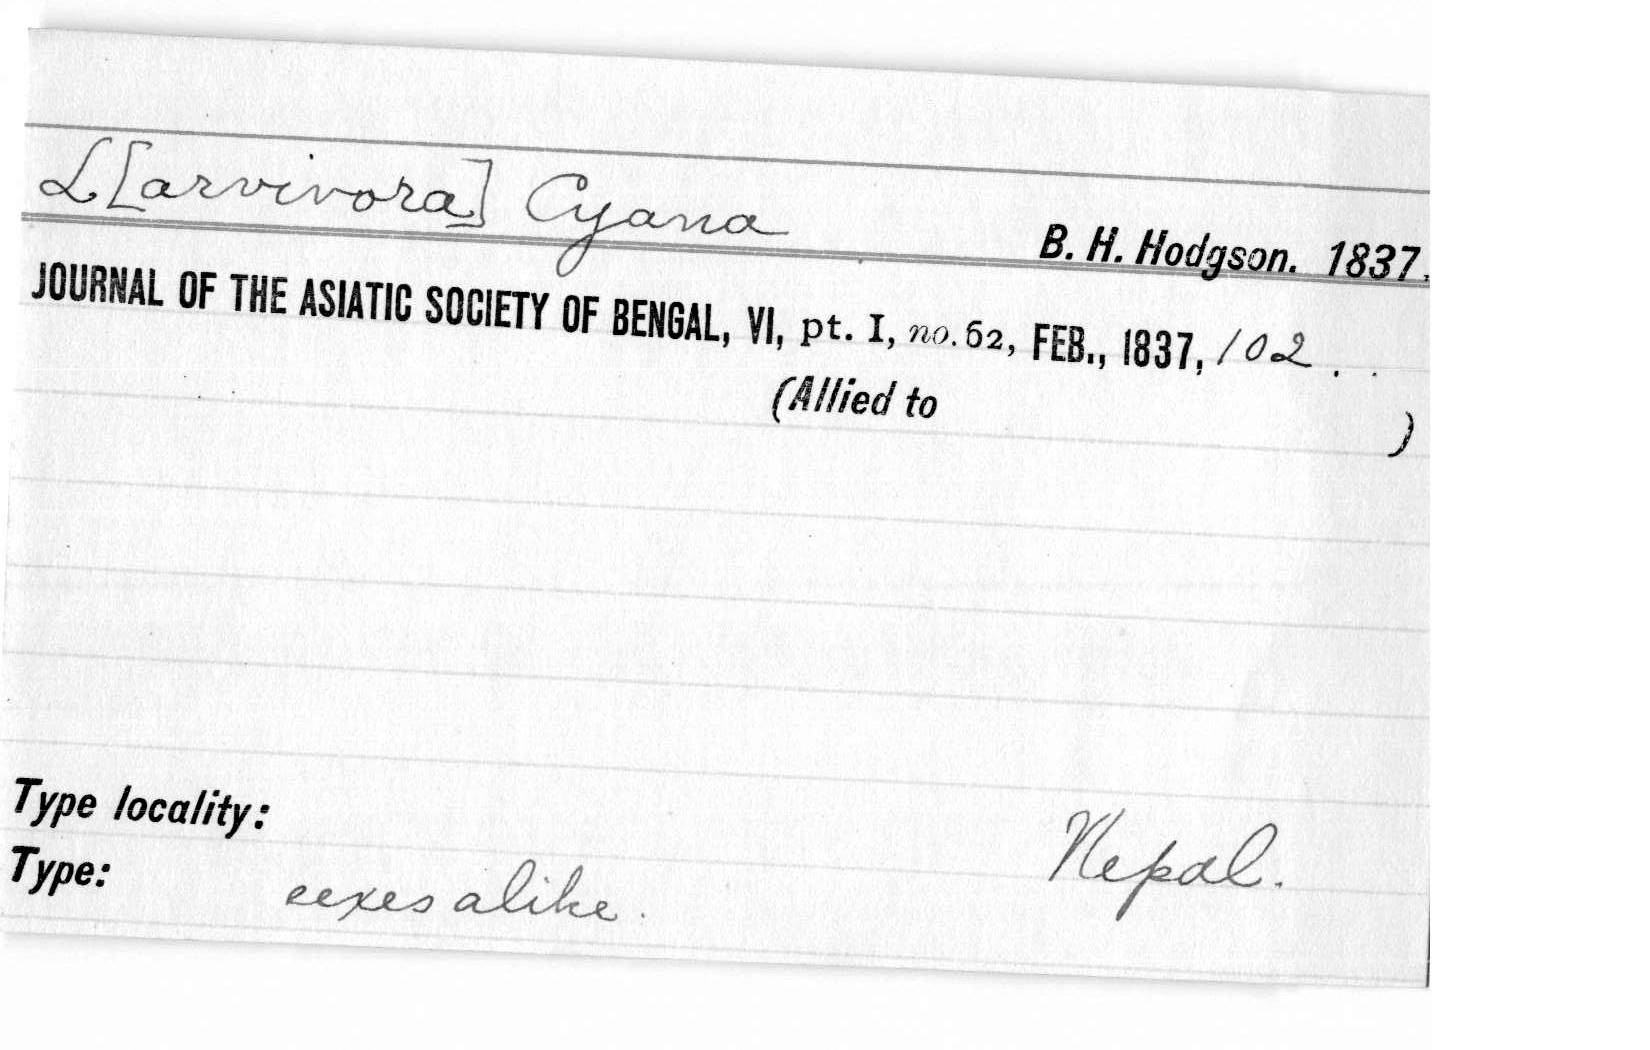 L[arvivora] Cyana
B. H. Hodgson. 1837.
JOURNAL OF THE ASIATIC SOCIETY OF BENGAL, VI, pt. I, no. 62, FEB., 1837, 102. .
(Allied to )
Type locality: Nepal.
Type: sexes alike.